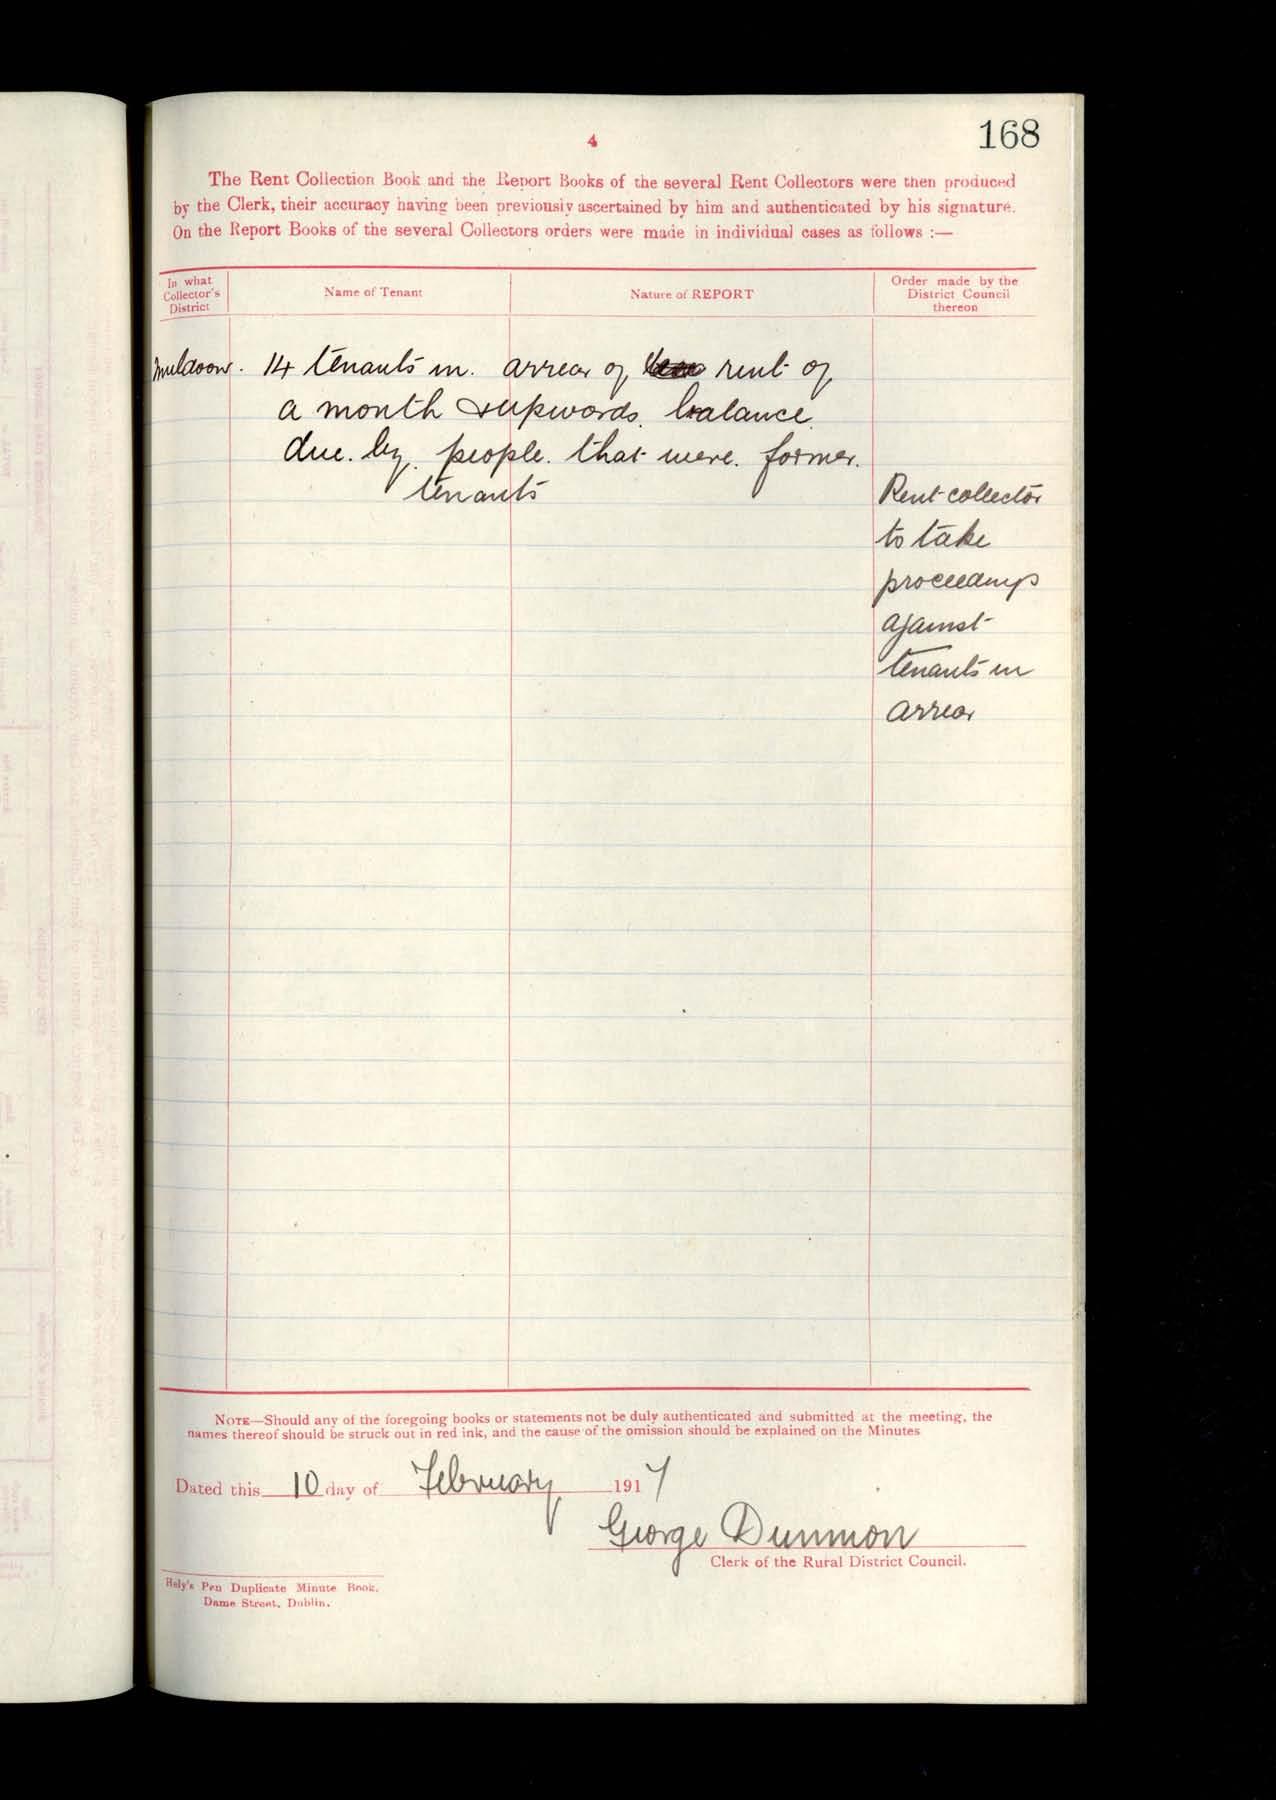 168
4
The Rent Collection Book and the Report Books of the several Rent Collectors were then produced
by the Clerk, their accuracy having been previously ascertained by him and authenticated by his signature.
On the Report Books of the several Collectors orders were made in individual cases as follows :—
In what Collector's District
Name of Tenant
Nature of REPORT
Order made by the District Council thereon
Muldoon. 14 tenants in. arrear of rent of
a month & upwards. balance
due. by. people. that were. former.
tenants
Rent collector
to take
proceedings
against
tenants in
arrear
NOTE—Should any of the foregoing books or statements not be duly authenticated and submitted at the meeting, the
names thereof should be struck out in red ink, and the cause of the omission should be explained on the Minutes
Dated this 10 day of February 1917
George Dunmon
Clerk of the Rural District Council.
Hely's Pen Duplicate Minute Book.
Dame Street, Dublin.